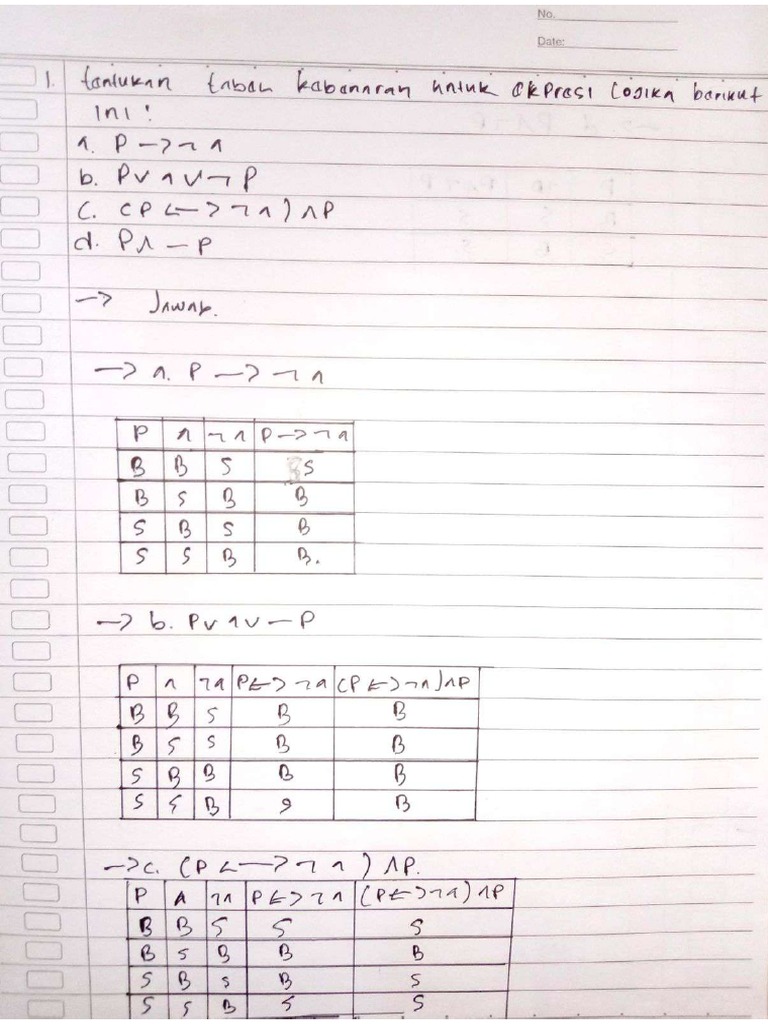 No.
Date:
1. tentukan tabel kebenaran untuk ekpresi logika berikut
ini :
a. P —> ¬ q
b. P ∨ q ∨ ¬ P
c. (P <—> ¬ q) ∧ P
d. P ∧ — P
—> Jawab.
—> a. P —> ¬ q
P q ¬ q P —> ¬ q
B B S S
B S B B
S B S B
S S B B.
—> b. P ∨ q ∨ — P
P q ¬ q P <-> ¬ q (P <-> ¬ q) ∧ P
B B S B B
B S S B B
S B B B B
S S B S B
—> c. (P <—> ¬ q) ∧ P.
P q ¬ q P <-> ¬ q (P <-> ¬ q) ∧ P
B B S S S
B S B B B
S B S B S
S S B S S